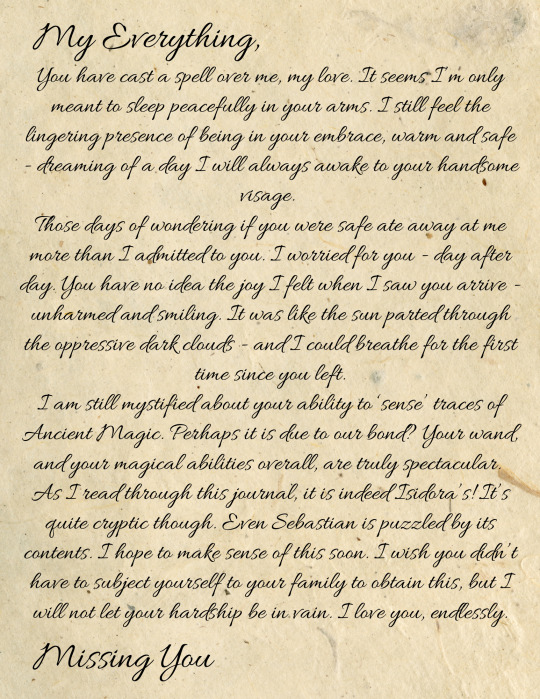 My Everything,
You have cast a spell over me, my love. It seems I'm only
meant to sleep peacefully in your arms. I still feel the
lingering presence of being in your embrace, warm and safe
- dreaming of a day I will always awake to your handsome
visage.
Those days of wondering if you were safe ate away at me
more than I admitted to you. I worried for you - day after
day. You have no idea the joy I felt when I saw you arrive -
unharmed and smiling. It was like the sun parted through
the oppressive dark clouds - and I could breathe for the first
time since you left.
I am still mystified about your ability to 'sense' traces of
Ancient Magic. Perhaps it is due to our bond? Your wand,
and your magical abilities overall, are truly spectacular.
As I read through this journal, it is indeed Isidora's! It's
quite cryptic though. Even Sebastian is puzzled by its
contents. I hope to make sense of this soon. I wish you didn't
have to subject yourself to your family to obtain this, but I
will not let your hardship be in vain. I love you, endlessly.
Missing You